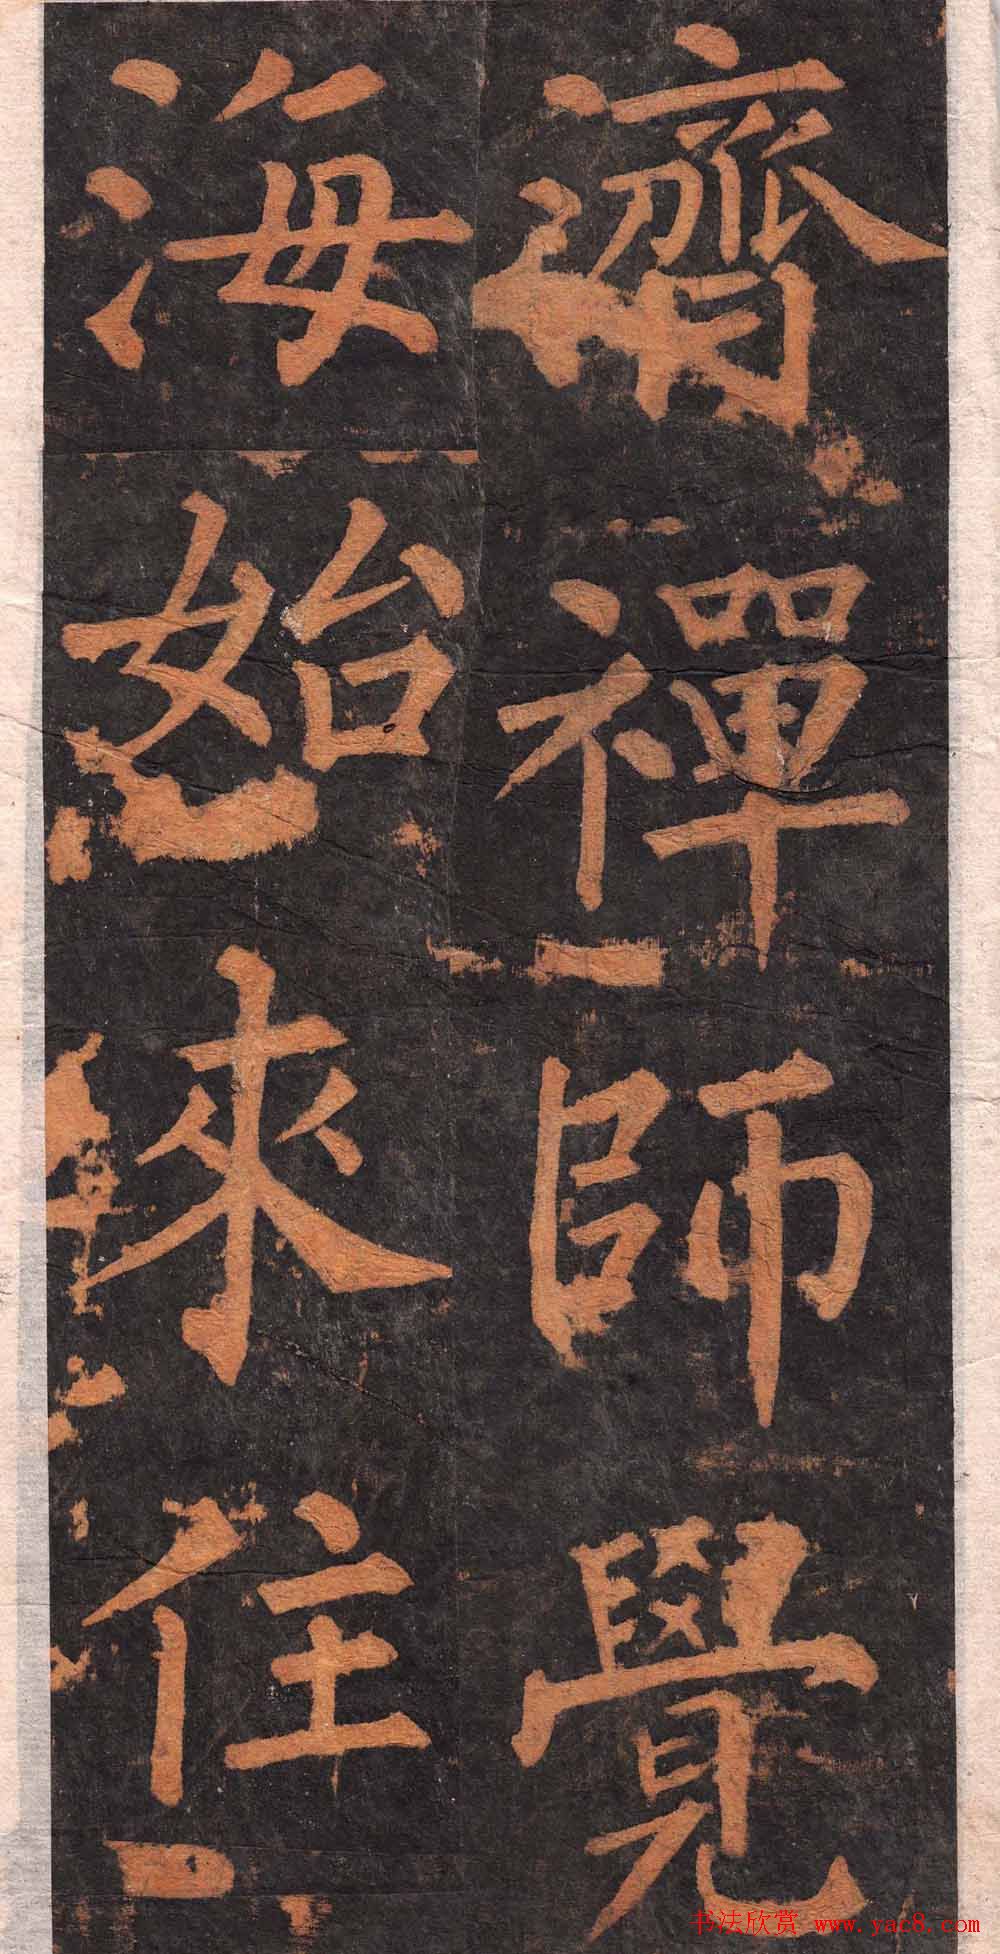 濟禪師覺
海始來住
书法欣赏 www.yac8.com